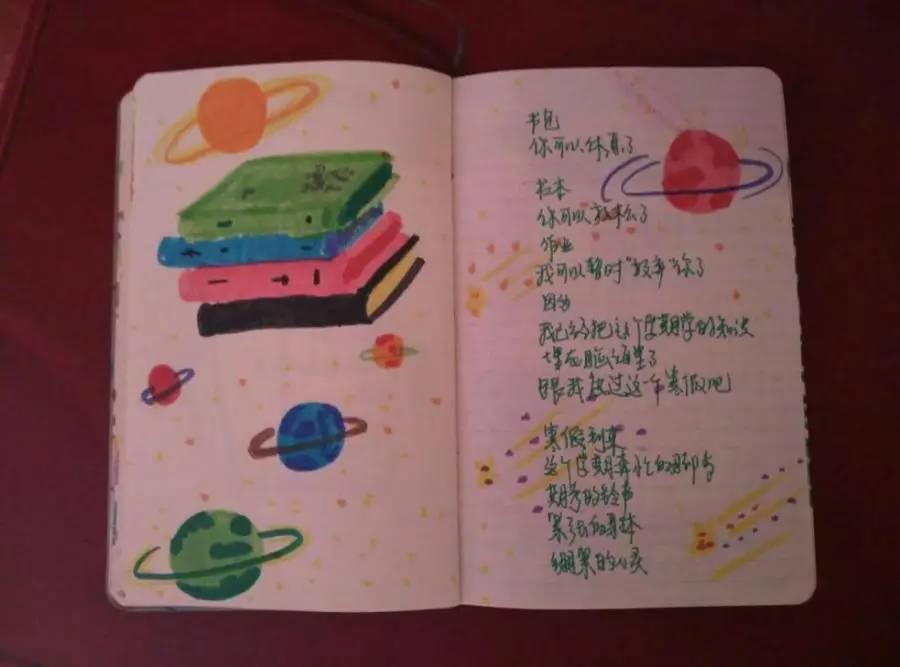 书包
你可以休息了
书本
你可以放松了
作业
我可以暂时“放弃”你了
因为
我已经把这个学期学的知识
在脑海里了
跟我度过这个寒假吧
寒假到来
这个学期奔忙的脚步
期考的铃声
的身体
的心灵